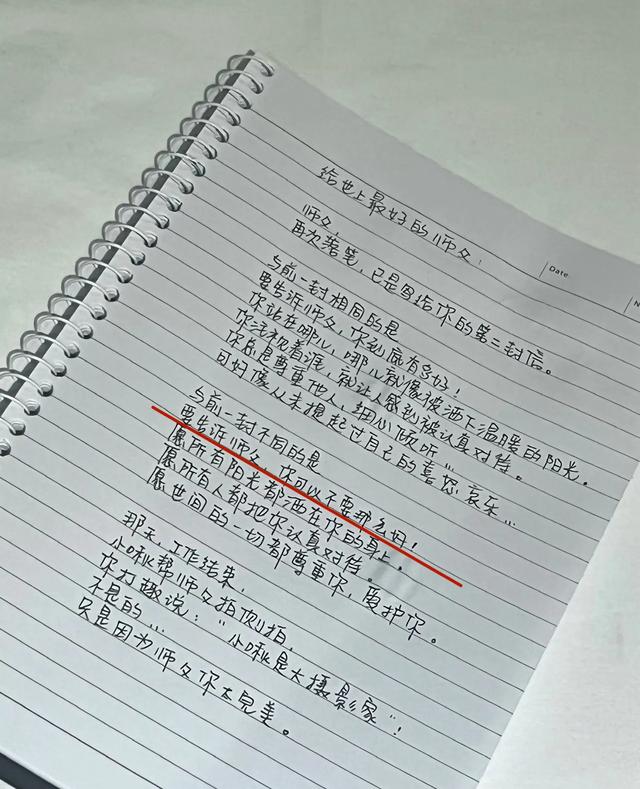 给世上最好的师父：
Date
N
师父，
再次落笔，已是写给你的第二封信。
与前一封相同的是
要告诉师父，你到底有多好！
你站在哪儿，哪儿就像被洒下温暖的阳光。
你浅祝着谁，就让人感到被认真对待。
你总是尊重他人，细心倾听…
可好像从未提起过自己的喜怒哀乐…
与前一封不同的是
要告诉师父，你可以不要那么好！
愿所有阳光都洒在你的身上。
愿所有人都把你认真对待。
愿世间的一切都尊重你，爱护你。
那天，工作结束，
小啾帮师父拍侧拍，
你打趣说：“小啾是大摄影家”！
不是的…
只是因为师父你太完美。